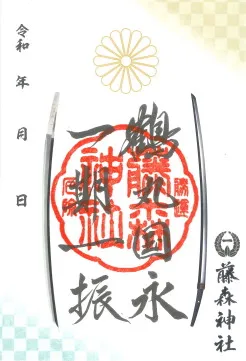 藤森神社
鶴丸国永
一期一振
令和 年 月 日
藤森
神社
勝運